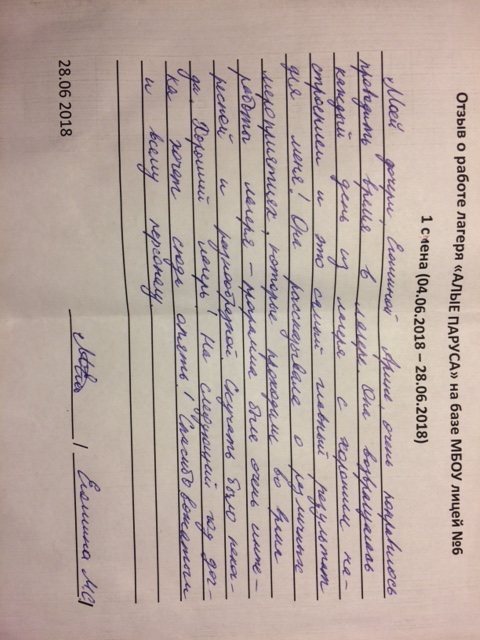 Отзыв о работе лагеря «АЛЫЕ ПАРУСА» на базе МБОУ лицей №6
1 смена (04.06.2018 – 28.06.2018)
Моей дочери, Еминой Арине, очень понравилось
проводить время в лагере. Она возвращалась
каждый день из лагеря с хорошим на-
строением и это самый главный результат
для меня! Она рассказывала о различных
мероприятиях, которые проходили во время
работы лагеря - программа была очень инте-
ресной и разнообразной. Скучать было неко-
гда. Хороший лагерь! На следующий год доч-
ка хочет сюда опять! Спасибо вожатым
и всему персоналу.
28.06 2018
/ Емина М.С./